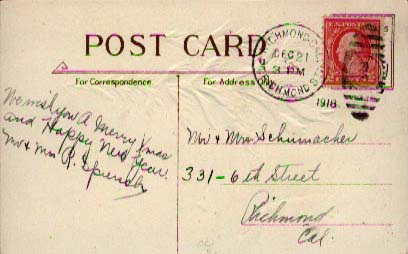 POST CARD
For Correspondence
For Address
RICHMOND, CAL.
DEC 21
3 PM
RICHMOND STA.
1918
We wish you A Merry Xmas
and Happy New Year.
Mr & Mrs R.
Mr & Mrs Schumacher
331 - 6th Street
Richmond
Cal.